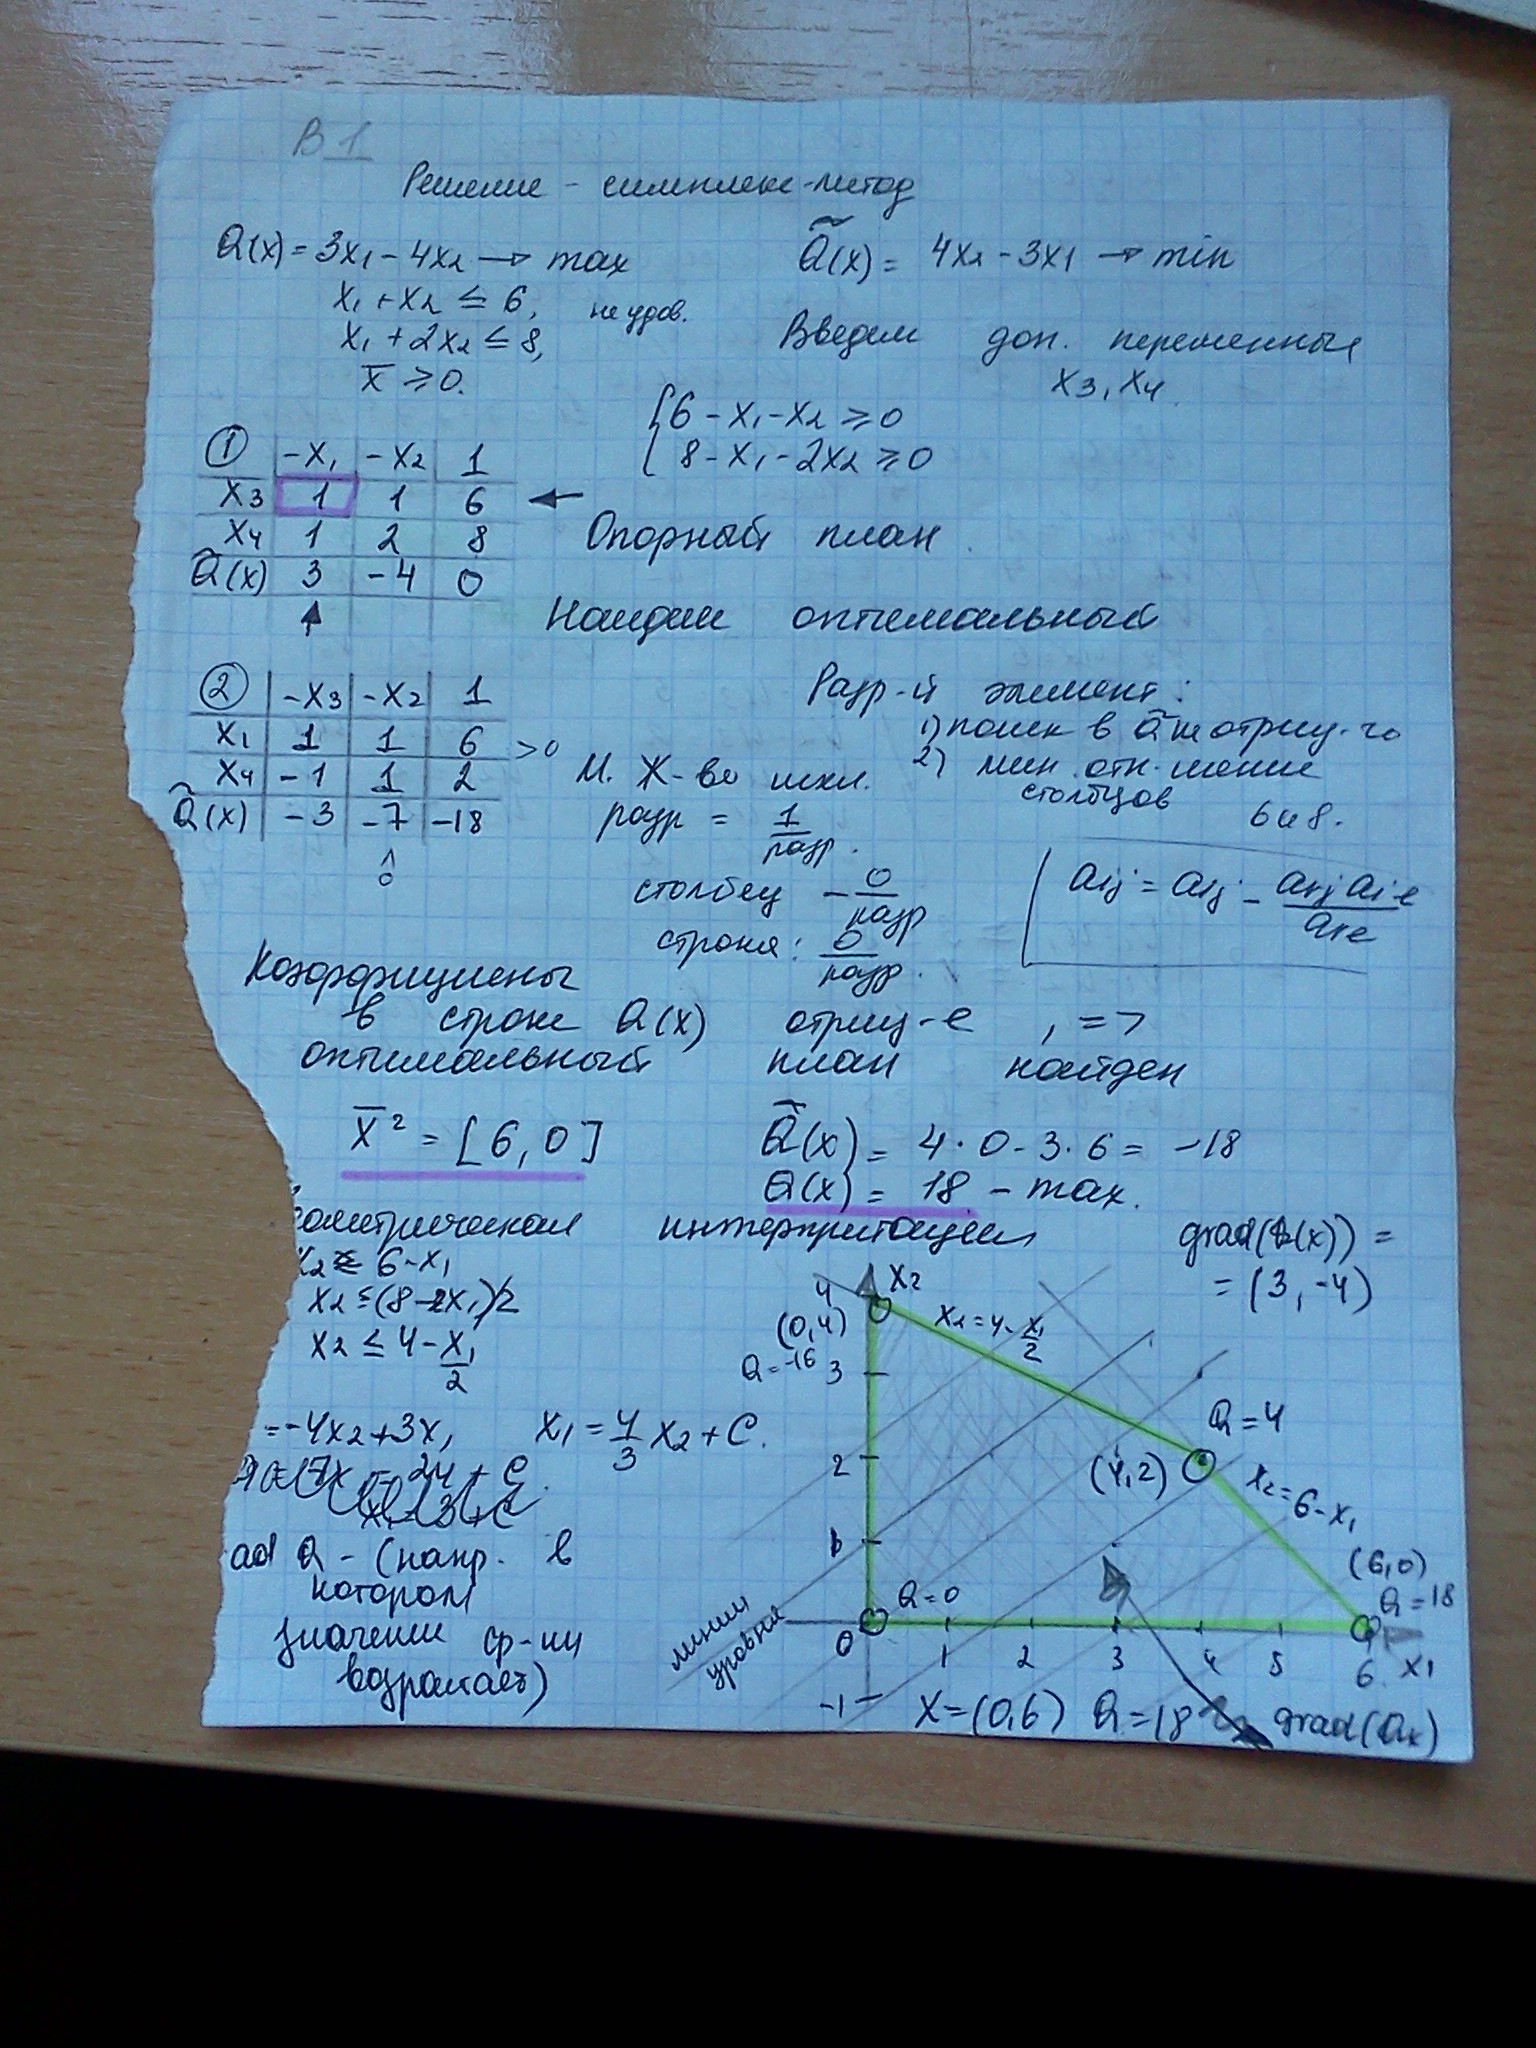 В 1
Решение - симплекс-метод
Q(x) = 3x₁ - 4x₂ → max
Q̃(x) = 4x₂ - 3x₁ → min
x₁ + x₂ ≤ 6,
x₁ + 2x₂ ≤ 8,
x̄ ≥ 0.
Введем доп. переменные
x₃, x₄
{6 - x₁ - x₂ ≥ 0
8 - x₁ - 2x₂ ≥ 0
① -x₁ -x₂ 1
x₃ 1 1 6
x₄ 1 2 8
Q̃(x) 3 -4 0
Опорный план
Найдем оптимальный
② -x₃ -x₂ 1
x₁ 1 1 6 >0
x₄ -1 1 2
Q̃(x) -3 -7 -18
^
0
Разр-й элемент:
1) поиск в Q̃ не отриц-го
2) мин. отн-шение
столбцов 6 и 8.
М. Ж-во искл.
разр = 1/разр.
столбец -0/разр
строка: 0/разр.
aij = aij - arj aie/are
Коэффициены
в строке Q(x) отриц-е , =>
оптимальный план найден
x̄² = [6, 0]
Q̃(x) = 4·0 - 3·6 = -18
Q(x) = 18 - max.
ометрическая интерпритация
x₂ ≤ 6 - x₁
x₂ ≤ (8 - x₁)/2
x₂ ≤ 4 - x₁/2
= -4x₂ + 3x₁
x₁ = 4/3 x₂ + C.
ad Q - (напр. в
котором
значение ф-ии
возрастает)
grad(Q(x)) =
= (3, -4)
x₂
4
(0,4)
Q = -16
3
x₂ = 4 - x₁/2
Q = 4
(4,2)
2
x₂ = 6 - x₁
1
(6,0)
Q = 18
Q = 0
линии
уровня
0 1 2 3 4 5 6 x₁
-1
X = (0,6) Q = 18
grad(Qx)